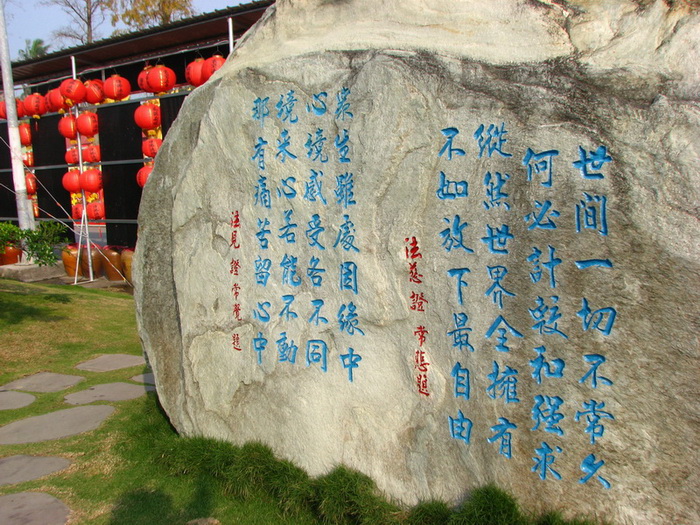 世間一切不常久
何必計較和強求
縱然世界全擁有
不如放下最自由
法慈證常悲題
眾生雖處因緣中
心境感受各不同
境來心若能不動
那有痛苦留心中
法見證常覺題